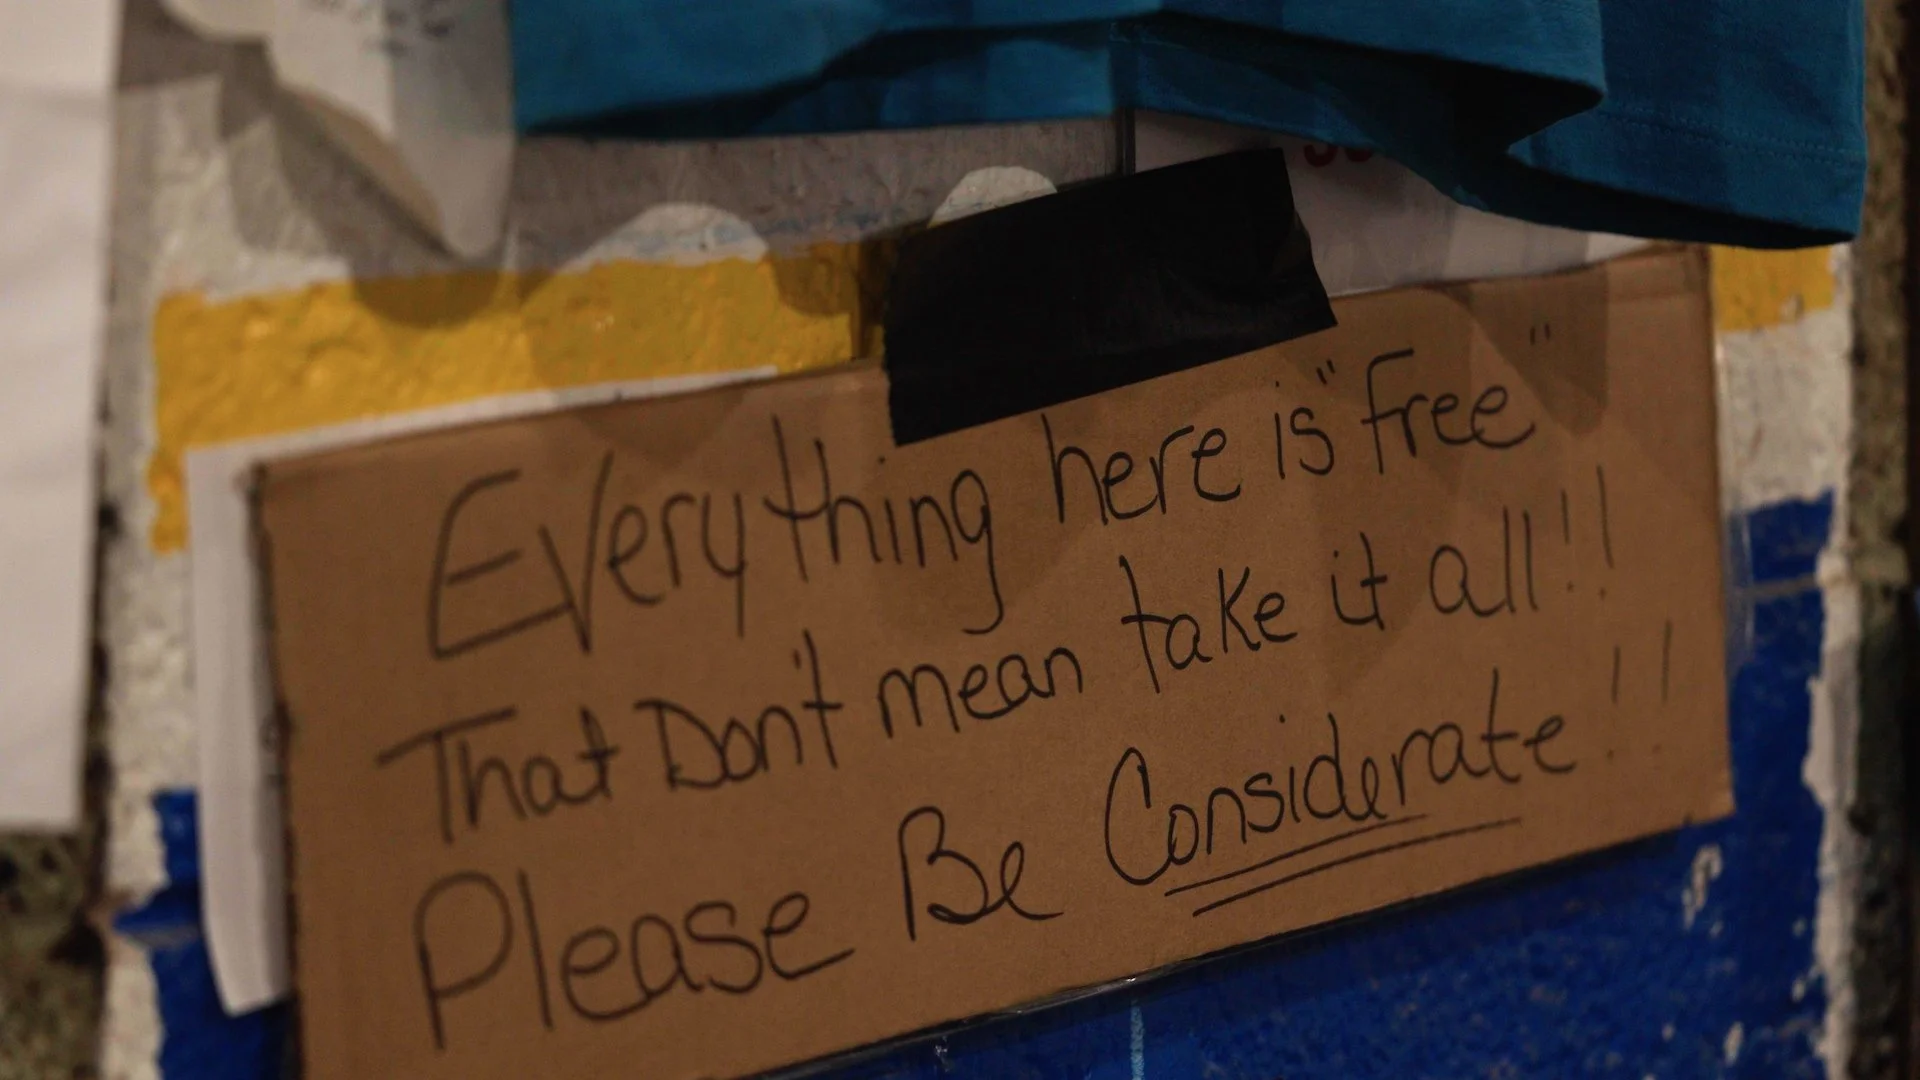 Everything here is "free"
That Don't mean take it all!!
Please Be Considerate!!